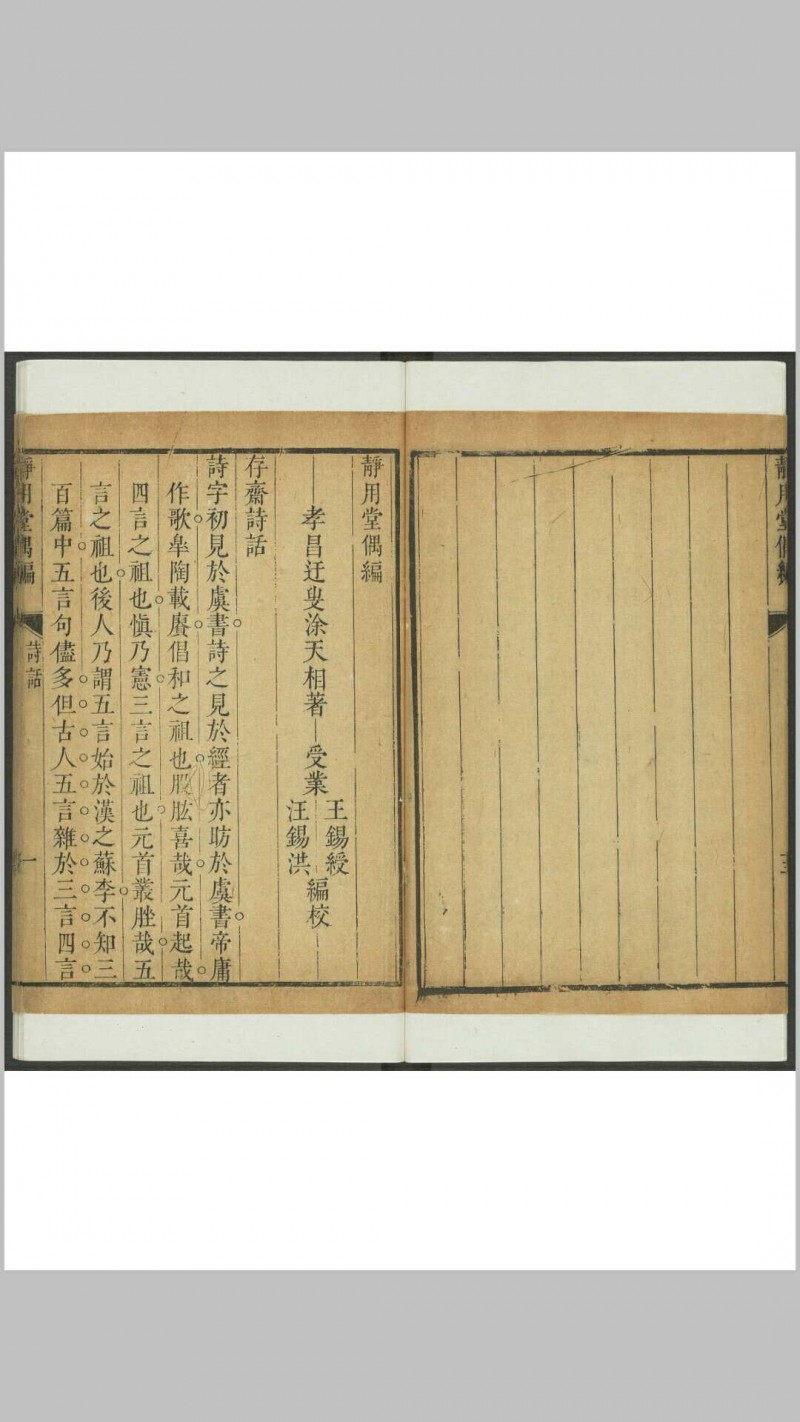 靜用堂偶編
三
靜用堂偶編
孝昌迂叟涂天相著
受業
王錫綬
汪錫洪
編校
存齋詩話
詩字初見於虞書詩之見於經者亦昉於虞書帝庸
作歌皋陶載賡倡和之祖也股肱喜哉元首起哉
四言之祖也慎乃憲三言之祖也元首叢脞哉五
言之祖也後人乃謂五言始於漢之蘇李不知三
百篇中五言句儘多但古人五言雜於三言四言
靜用堂偶編
詩話
一